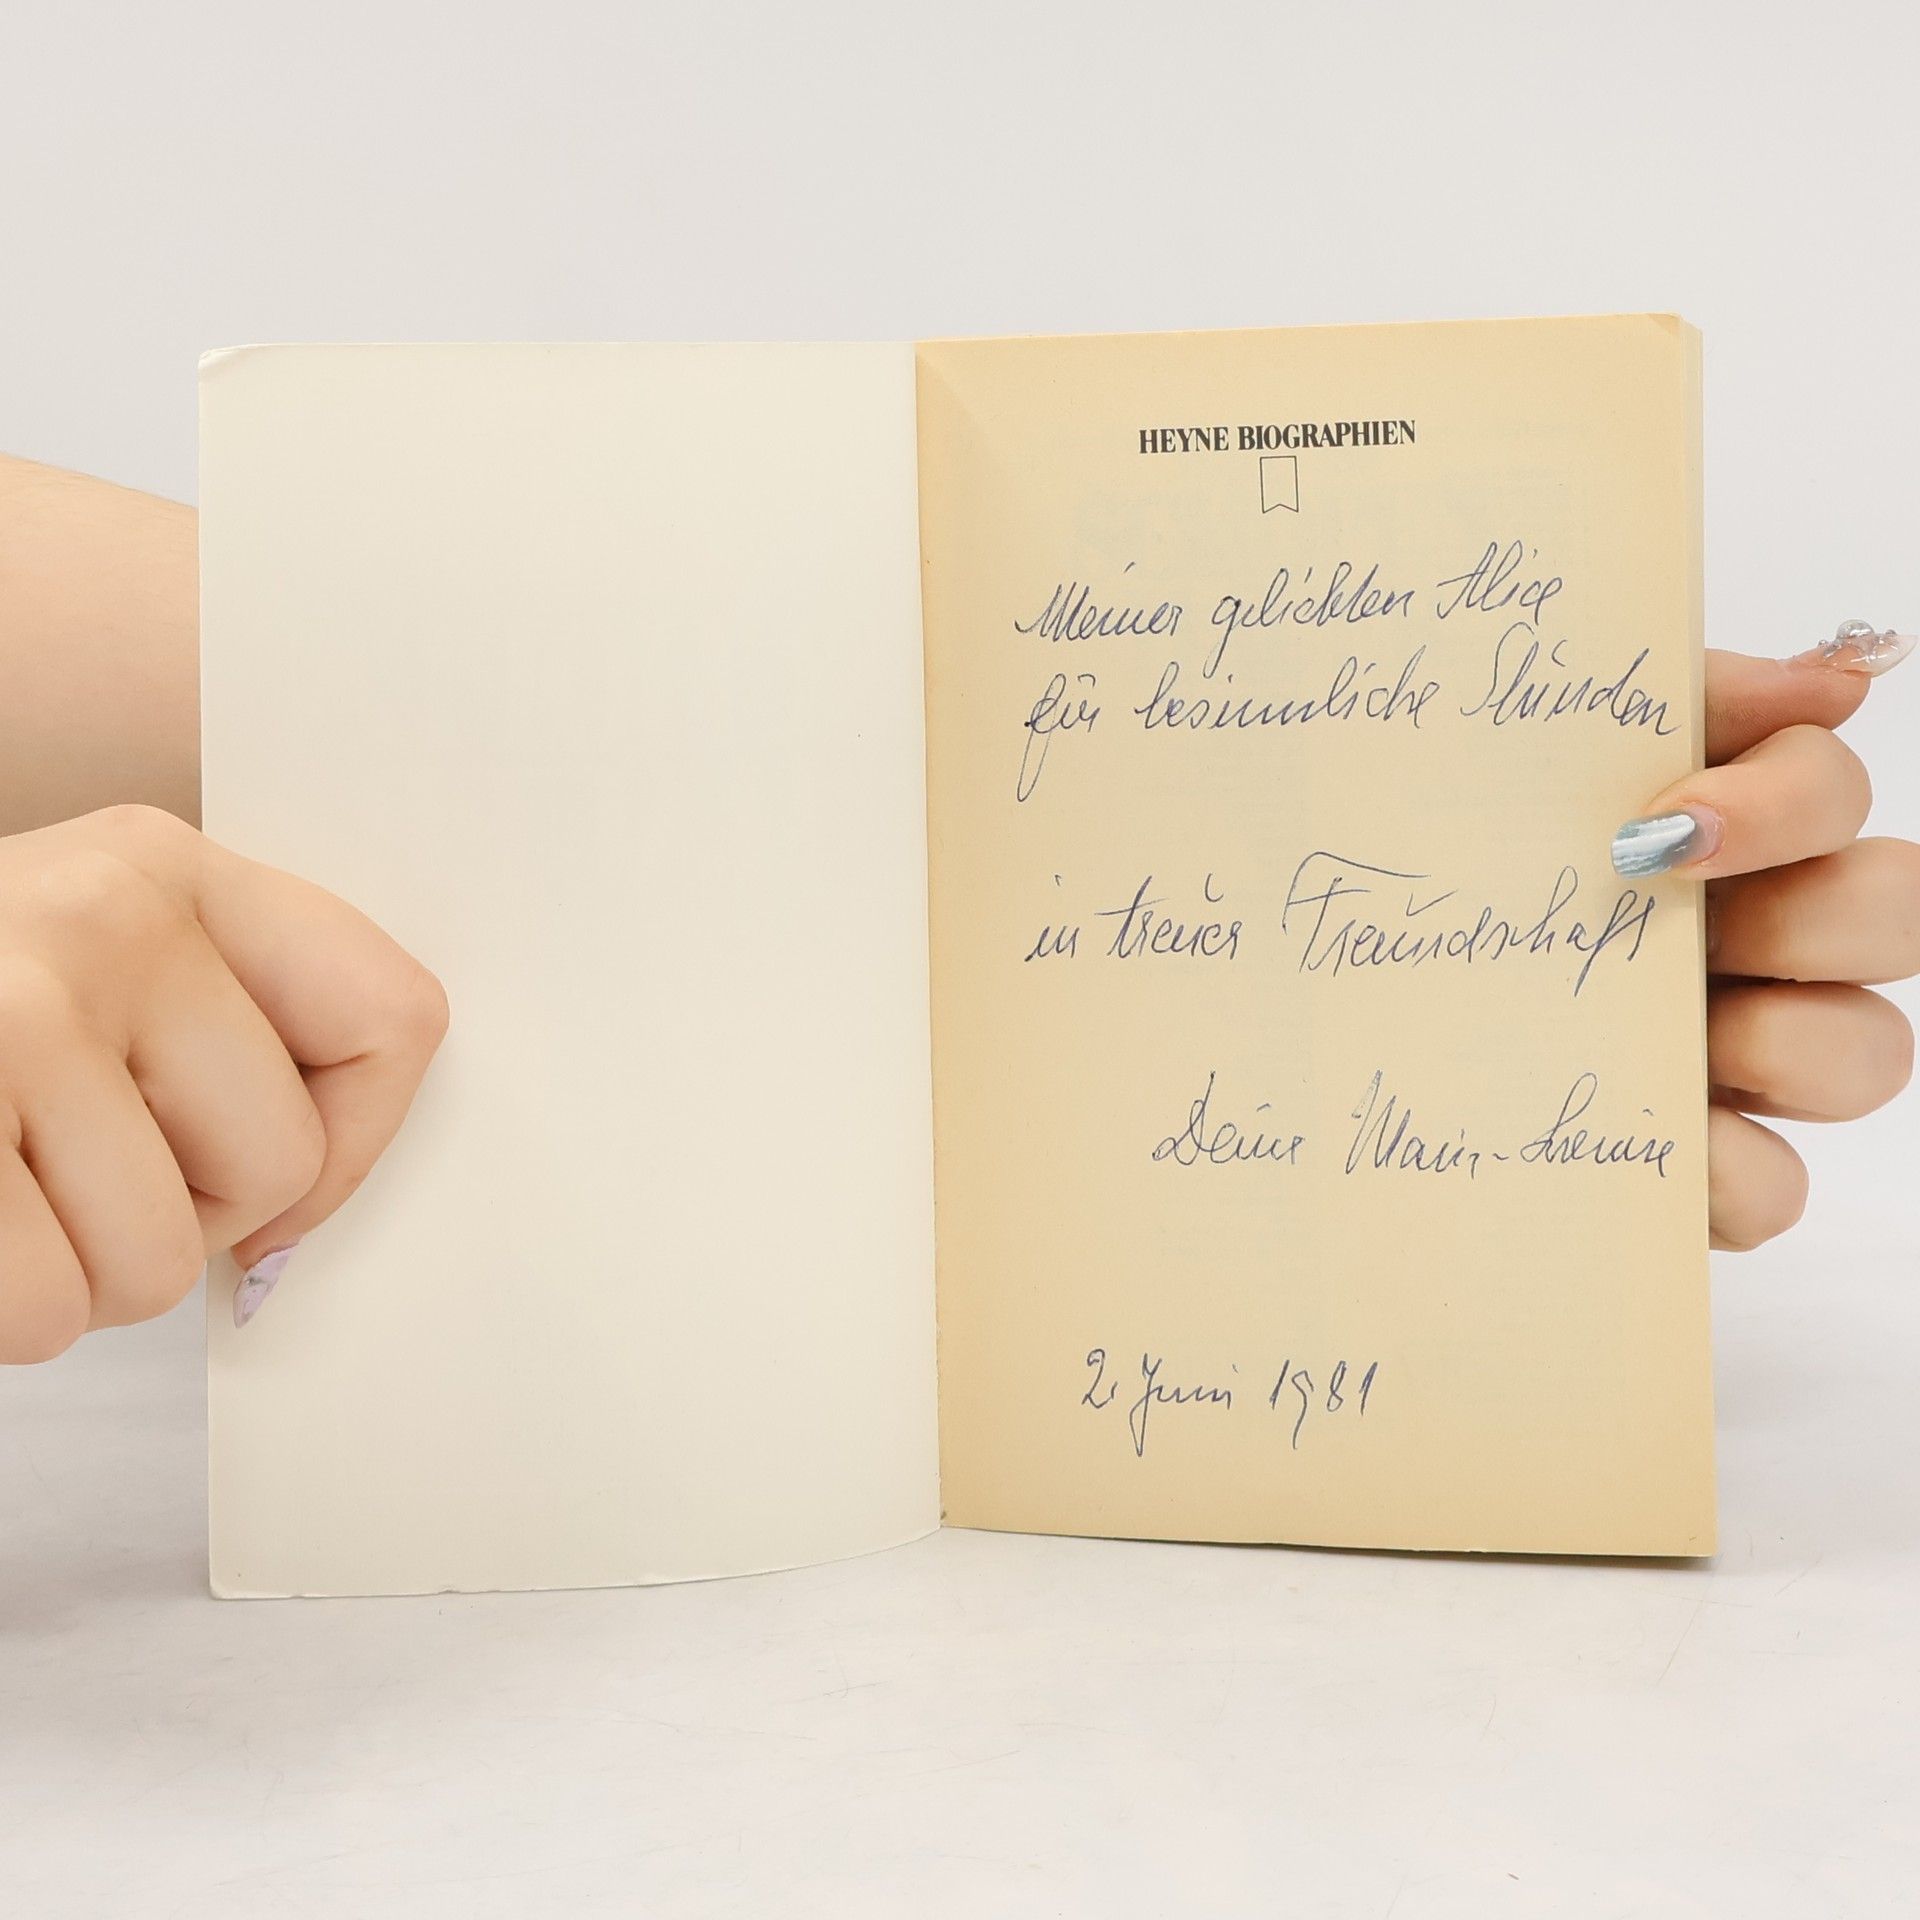 HEYNE BIOGRAPHIEN
Meiner geliebten Alice
für besinnliche Stunden
in treuer Freundschaft
Deine Marie-Louise
2. Juni 1981